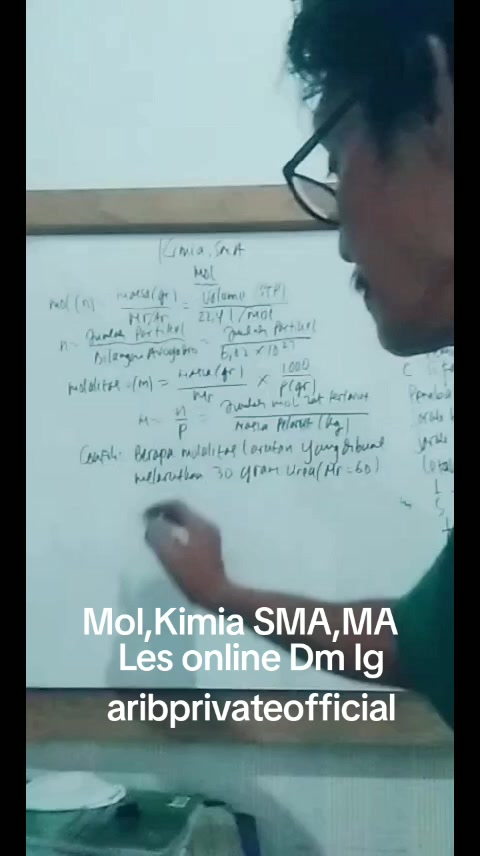 Kimia, SMA
Mol
mol (n) = Massa (gr) / Mr/Ar = Volume (STP) / 22,4 l/mol
n = Jumlah Partikel / Bilangan Avogadro = Jumlah Partikel / 6,02 x 10²³
molalitas = (m) = Massa (gr) / Mr x 1000 / P (gr)
n / P = Jumlah mol zat terlarut / Massa Pelarut (kg)
Contoh: Berapa molalitas larutan yang dibuat
melarutkan 30 gram Urea (Mr = 60)
Mol,Kimia SMA,MA
Les online Dm Ig
aribprivateofficial